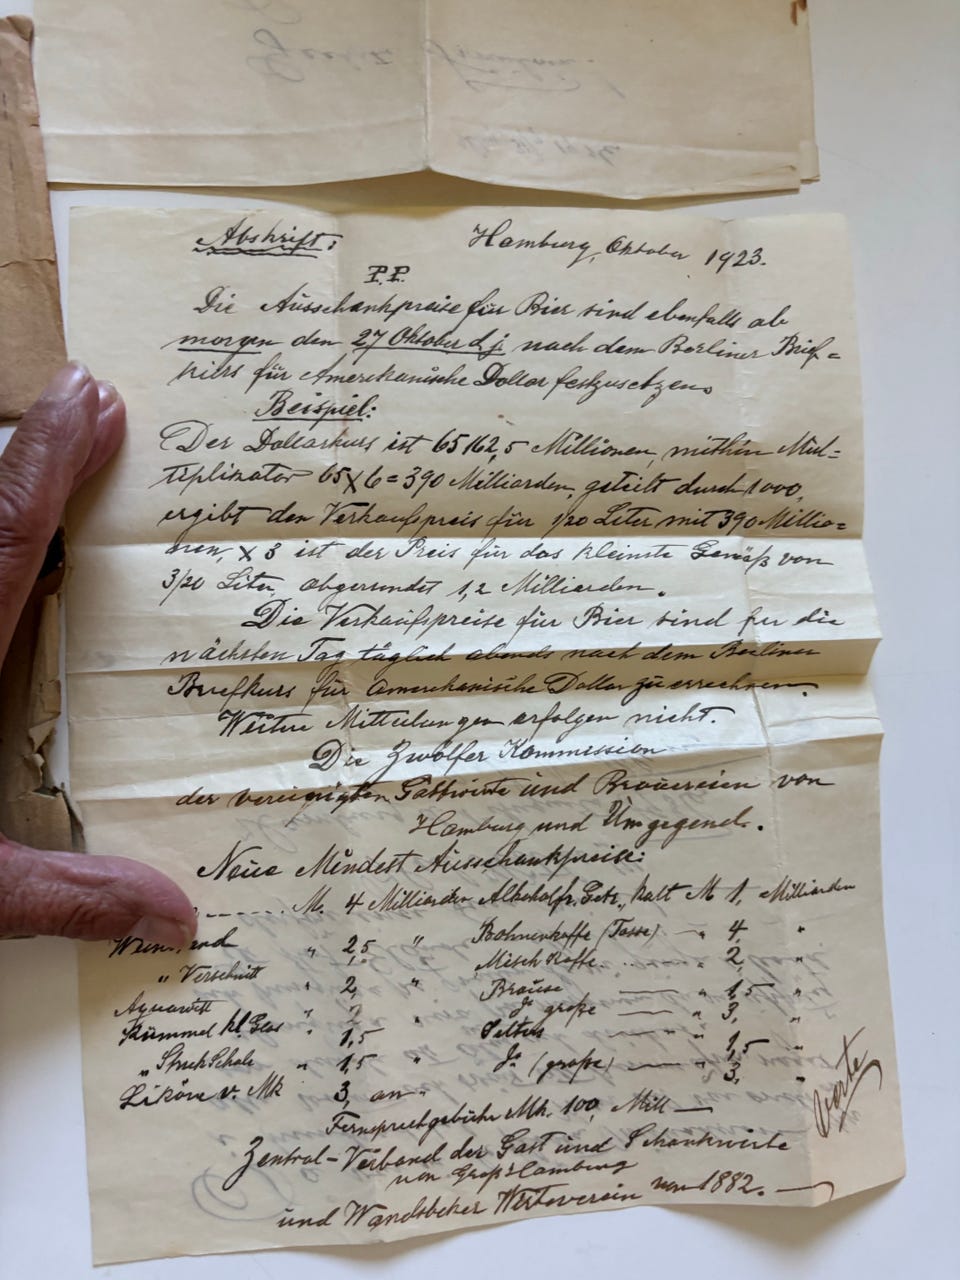 Abschrift:
Hamburg, Oktober 1923.
P.P.
Die Ausschankpreise für Bier sind ebenfalls ab
morgen den 27 Oktober d. j. nach dem Berliner Brief=
kurs für Amerikanische Dollar festzusetzen.
Beispiel:
Der Dollarkurs ist 65162,5 Millionen, mithin Mul=
tiplikator 65 x 6 = 390 Milliarden, geteilt durch 1000,
ergibt den Verkaufspreis für 1/20 Liter mit 390 Millio=
nen, x 3 ist der Preis für das kleinste Gemäß von
3/20 Liter, abgerundet 1,2 Milliarden.
Die Verkaufspreise für Bier sind fur die
nächsten Tag täglich abends nach dem Berliner
Briefkurs für Amerikanische Dollar zu errechnen.
Weitere Mitteilungen erfolgen nicht.
Die Zwölfer Kommission
der vereinigten Gastwirte und Brauereien von
Hamburg und Umgegend.
Neue Mindest Ausschankpreise:
M. 4 Milliarden Alkoholfr. Getr., kalt M 1, Milliarden
" 2,5 " Bohnenkaffe (Tasse) — " 4, "
" Verschnitt " 2, Misch Kaffe " 2, "
Aquavit " 2 Brause — " 1,5 "
Do große — " 3, "
Kümmel kl. Glas " 1,5 Selters — " 1,5 "
" 1,5 " Do (große) — " 3, "
Liköre v. Mk 3, an "
Fernsprechgebühr Mk. 100, Mill —
Zentral-Verband der Gast und Schankwirte
von Groß Hamburg
und Wandsbeker Wirteverein von 1882. —